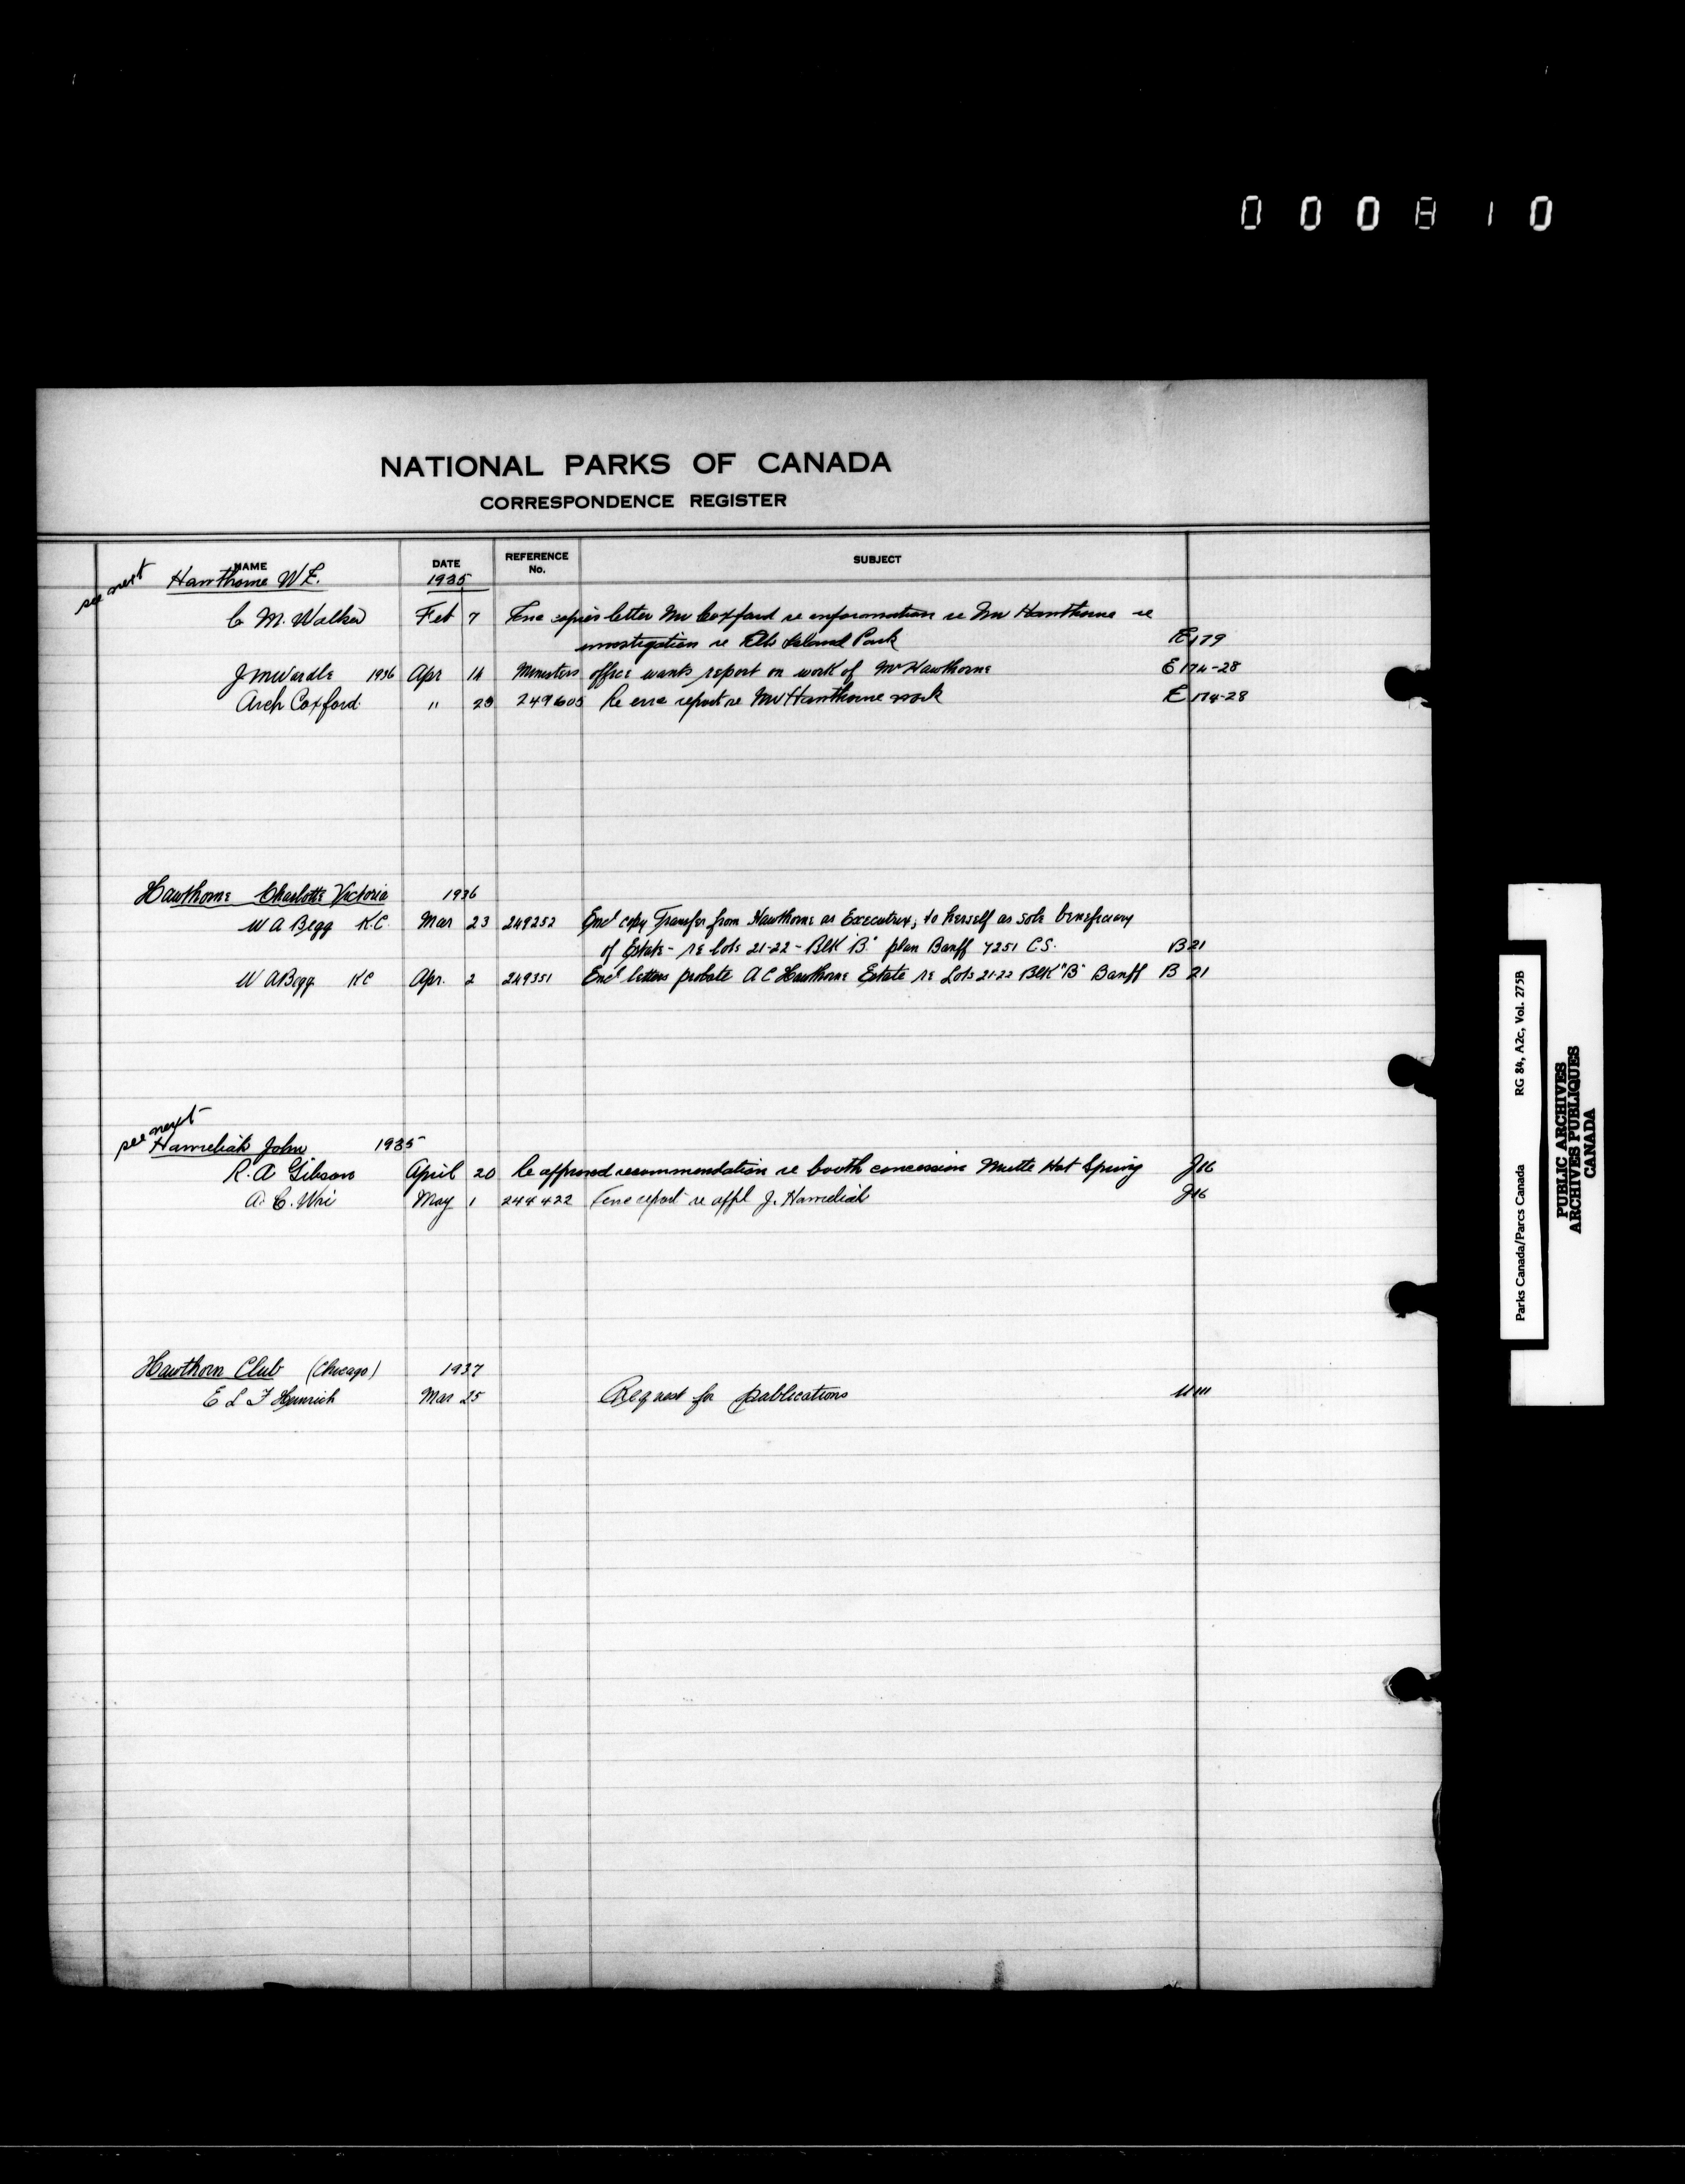 000810
NATIONAL PARKS OF CANADA
CORRESPONDENCE REGISTER
NAME DATE REFERENCE No. SUBJECT
see next Hawthorne W E. 1935
C M. Walker Feb 7 copies letter Mr Coxford re information re Mr Hawthorne re
investigation re Elk Island Park E 179
J M Wardle 1936 Apr 14 Ministers office wants report on work of Mr Hawthorne E 174-28
Arch Coxford " 23 249605 report re Mr Hawthorne work E 174-28
Hawthorne Charlotte Victoria 1936
W A Begg K.C. Mar 23 249252 Encl copy Transfer from Hawthorne as Executrix, to herself as sole beneficiary
of Estate - re lots 21-22 - Blk "B" plan Banff 4251 C.S. B 21
W A Begg KC Apr. 2 249351 Encl letters probate A C Hawthorne Estate re Lots 21-22 Blk "B" Banff B 21
see next
John 1935
R. A Gibson April 20 approved recommendation re booth concession Miette Hot Spring J 16
A. C. May 1 244422 report re appl J. J 16
Hawthorn Club (Chicago) 1937
E L F Heinrich Mar 25 Request for publications U 111
Parks Canada/Parcs Canada RG 84, A2c, Vol. 275B
PUBLIC ARCHIVES
ARCHIVES PUBLIQUES
CANADA